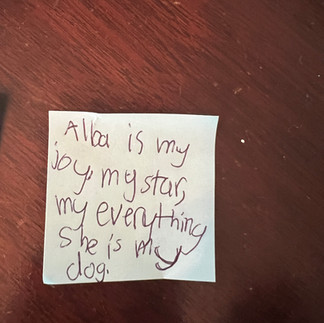 Alba is my
joy, my star,
my everything
She is my
dog.